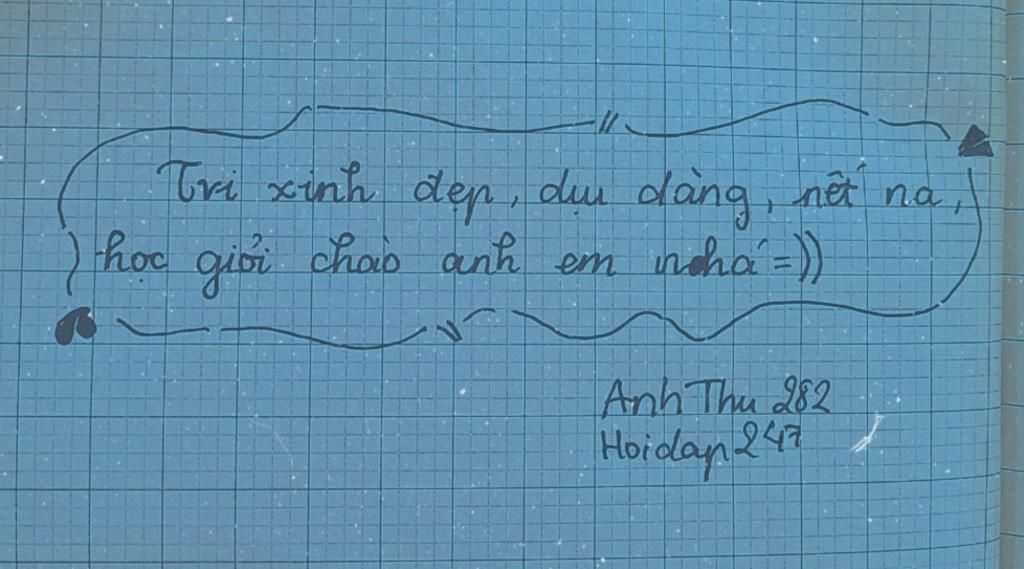 Tri xinh đẹp, dịu dàng, nết na,
học giỏi chào anh em nhá =))
Anh Thu 282
Hoidap247